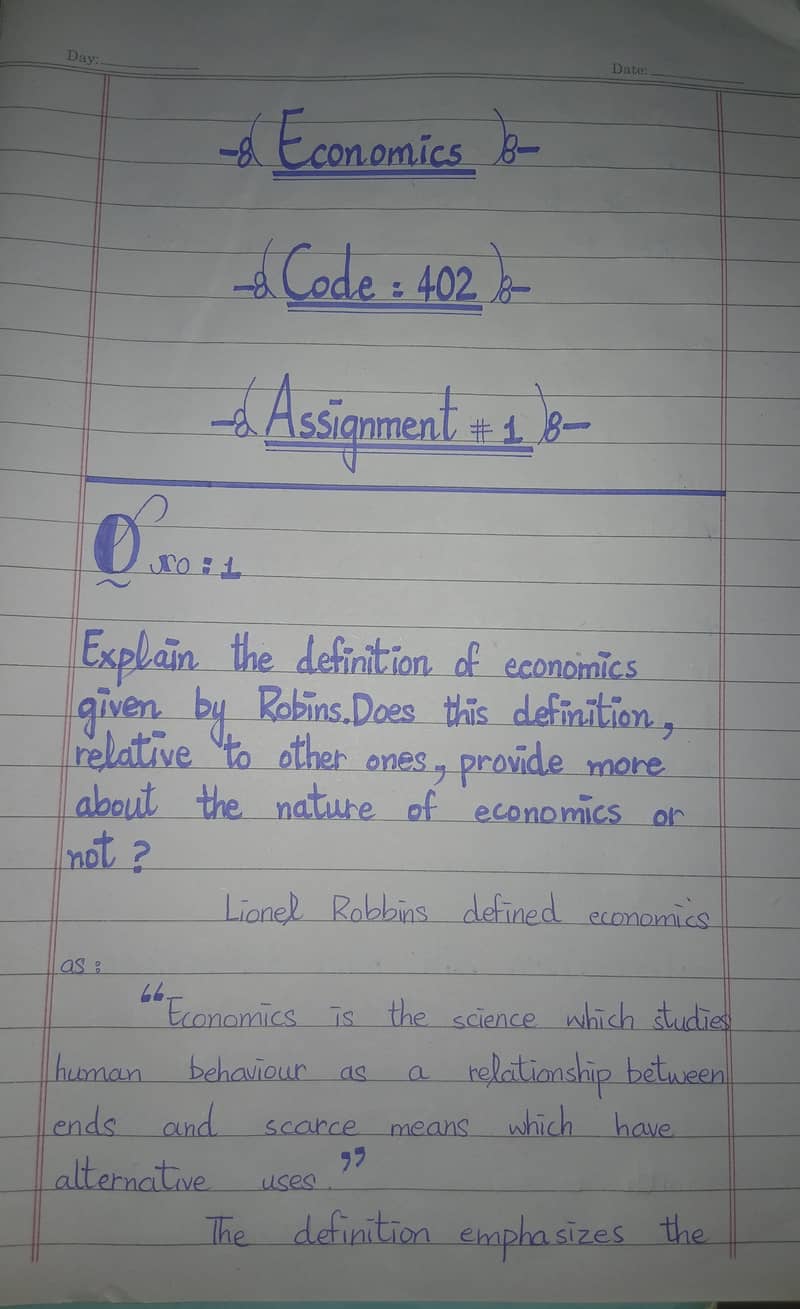 Day:
Date:
Economics
Code : 402
Assignment # 1
Q no : 1
Explain the definition of economics
given by Robins. Does this definition,
relative to other ones, provide more
about the nature of economics or
not ?
Lionel Robbins defined economics
as :
“Economics is the science which studies
human behaviour as a relationship between
ends and scarce means which have
alternative uses.”
The definition emphasizes the